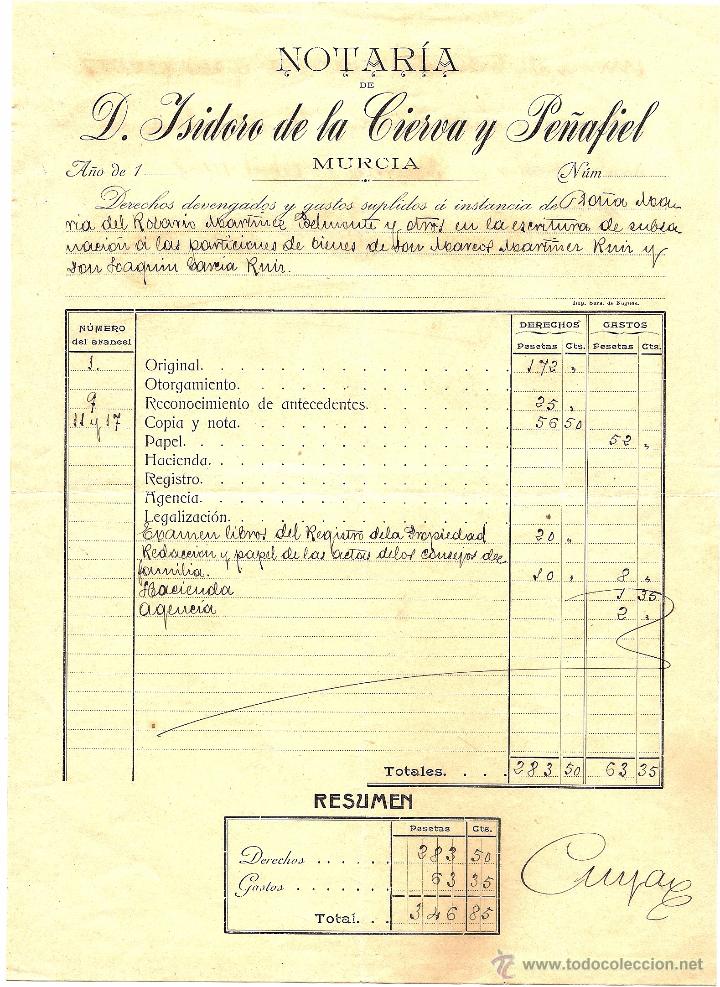 NOTARÍA
DE
D. Isidoro de la Cierva y Peñafiel
MURCIA
Año de 1 Núm
Derechos devengados y gastos suplidos á instancia de Doña Ma-
ria del Rosario Martinez Belmonte y otros en la escritura de subsa
nacion á las particiones de bienes de Don Marcos Martinez Ruiz y
Don Joaquin Garcia Ruiz.
Imp. Sucs. de Nogués.
NÚMERO del arancel DERECHOS GASTOS
Pesetas Cts. Pesetas Cts.
1. Original. 172 "
Otorgamiento.
9 Reconocimiento de antecedentes. 25 "
11 y 17 Copia y nota. 56 50
Papel. 52 "
Hacienda.
Registro.
Agencia.
Legalización.
Examen libros del Registro de la Propiedad 20 "
Redaccion y papel de las actas de los consejos de
familia. 10 " 8 "
Hacienda 1 35
Agencia 2 "
Totales. 283 50 63 35
RESUMEN
Pesetas Cts.
Derechos 283 50
Gastos 63 35
Total. 346 85
www.todocoleccion.net